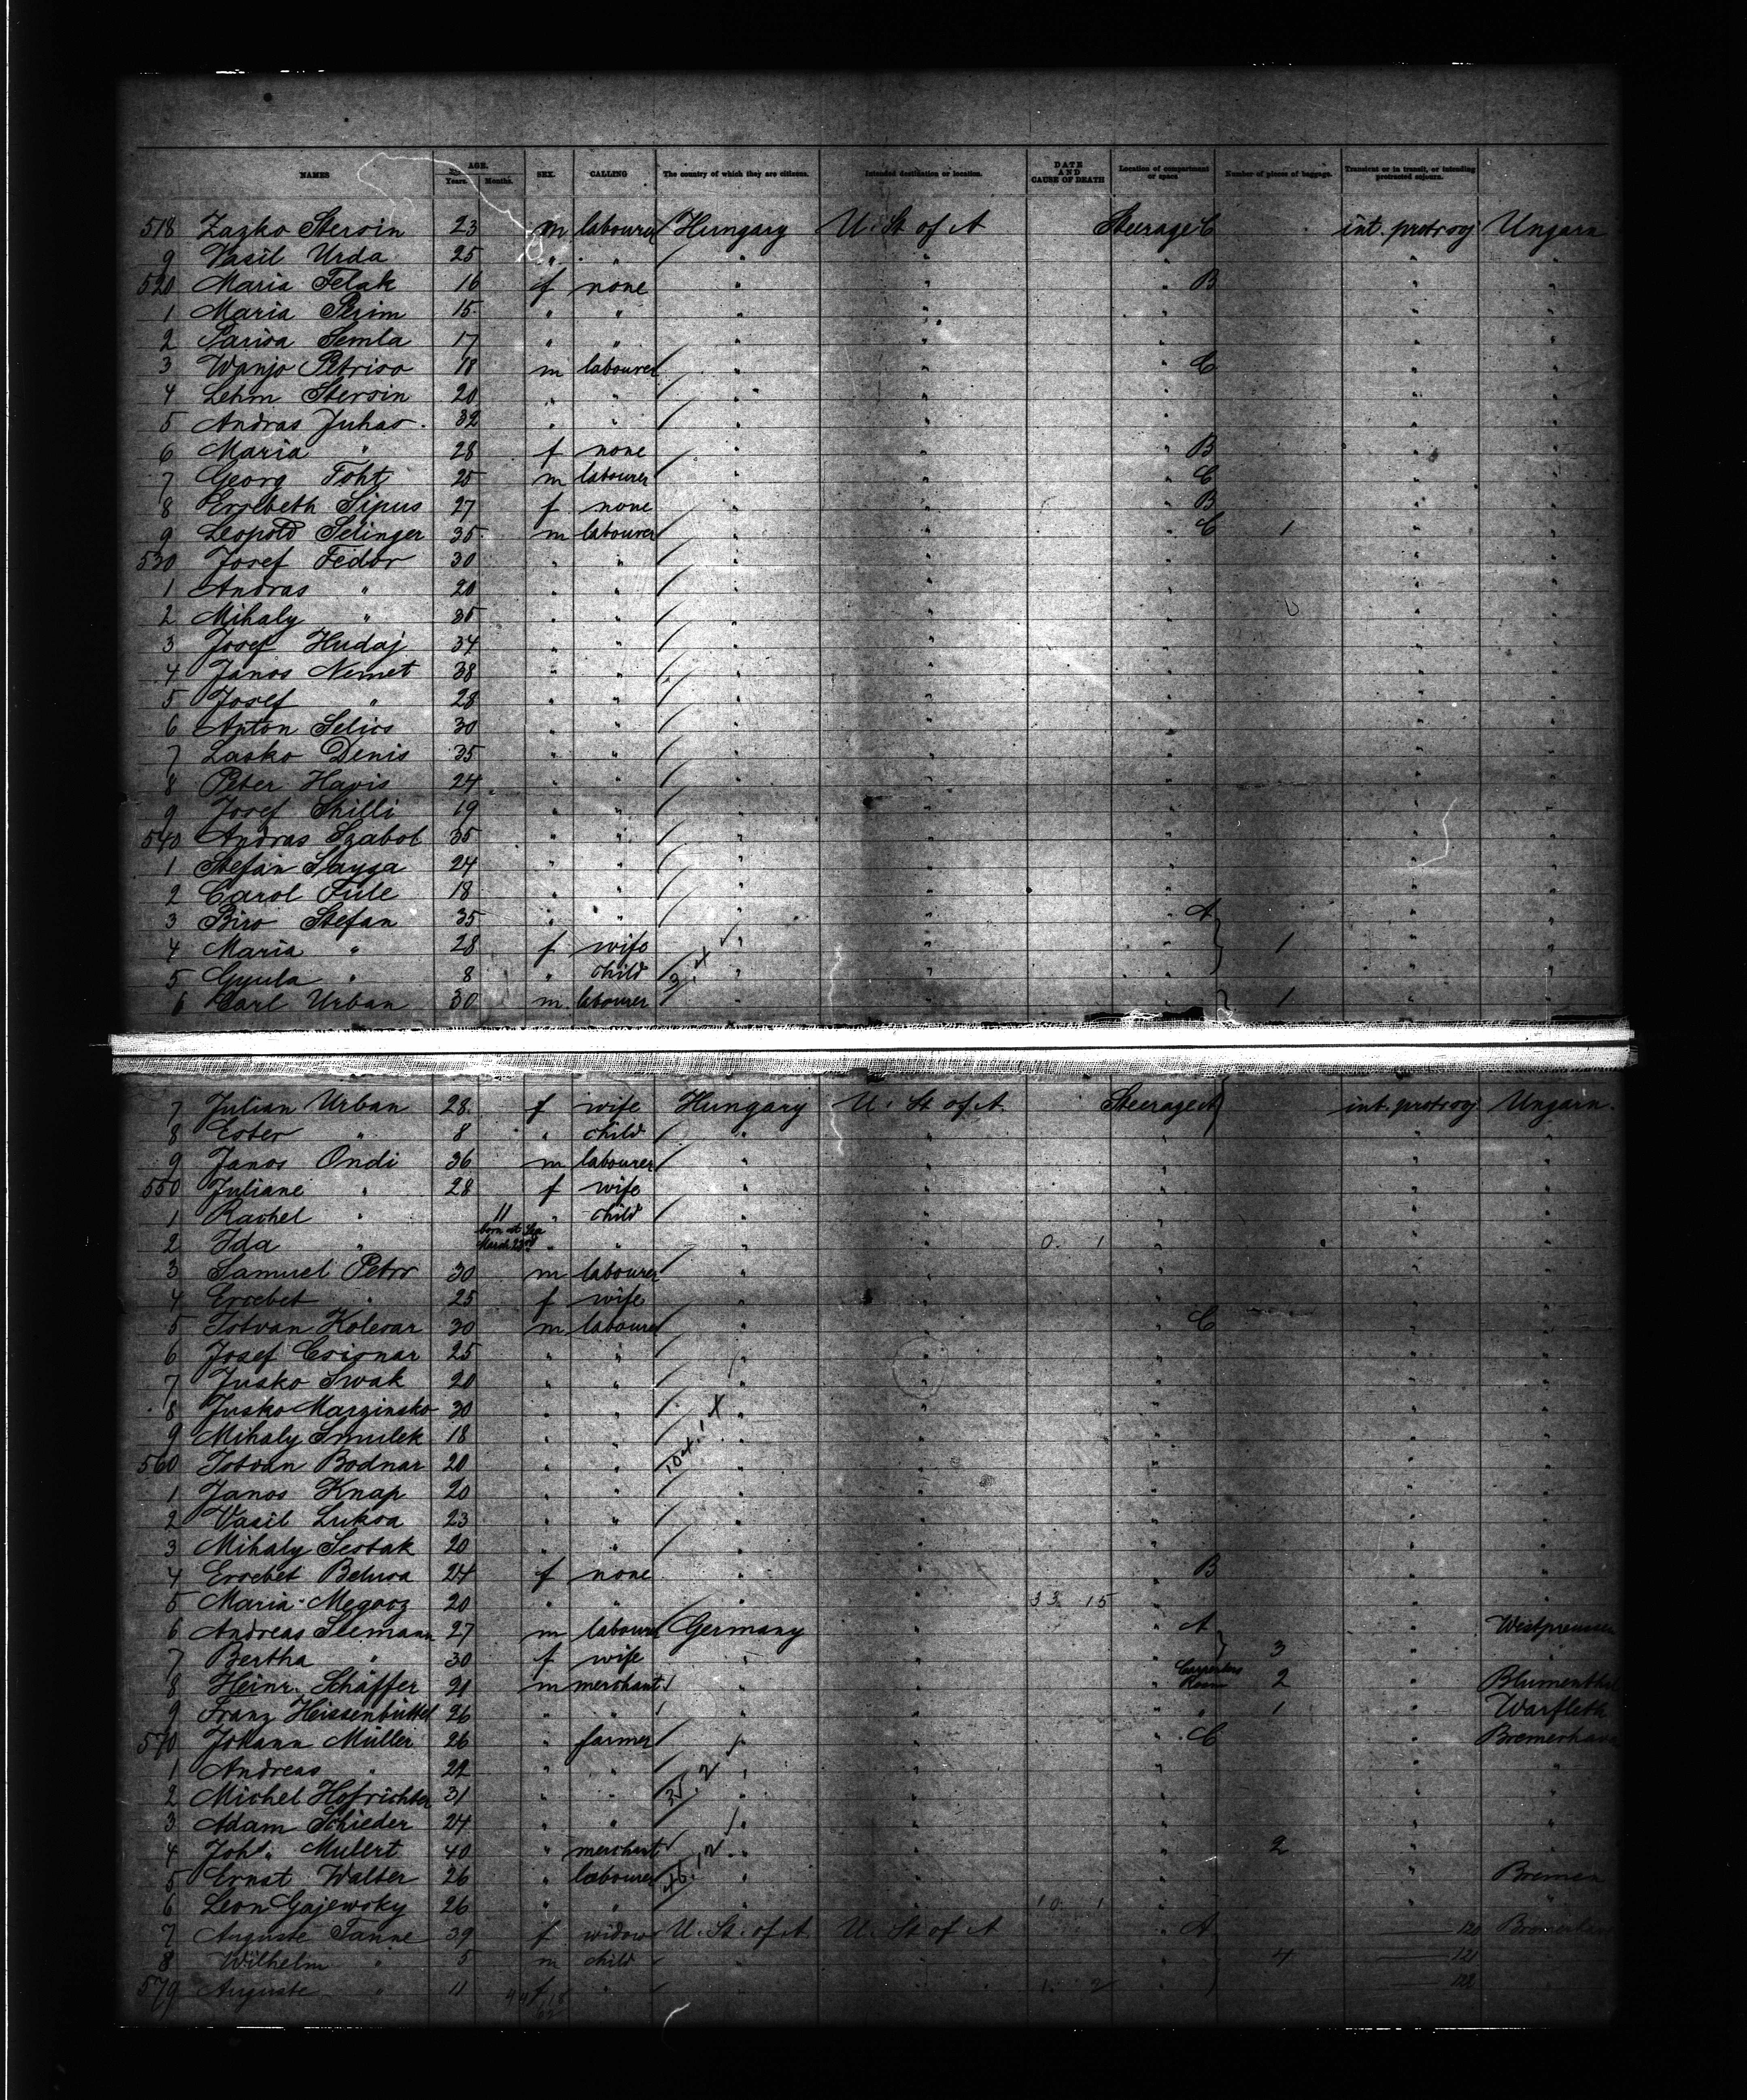 NAMES AGE. Years. Months. SEX. CALLING The country of which they are citizens. Intended destination or location. DATE AND CAUSE OF DEATH Location of compartment or space Number of pieces of baggage. Transient or in transit, or intending protracted sojourn.
518 Zazko Stersin 23 m labourer Hungary U. St of A Steerage C int. protr soj Ungarn
9 Vasil Urda 25 " " " " " " "
520 Maria Felak 16 f none " " " B " "
1 Maria Prim 15 " " " " " " "
2 Parisa Semla 17 " " " " " " "
3 Wanjo Petriso 18 m labourer " " " C " "
4 Lehm Stersin 20 " " " " " " "
5 Andras Juhas 32 " " " " " " "
6 Maria " 28 f none " " " B " "
7 Georg Toht 25 m labourer " " " C " "
8 Ersebeth Sipus 27 f none " " " B " "
9 Leopold Selinger 35 m labourer " " " C 1 " "
530 Josef Fedor 30 " " " " " " "
1 Andras " 20 " " " " " " "
2 Mihaly " 35 " " " " " " "
3 Josef Hudaj 34 " " " " " " "
4 Janos Nemet 38 " " " " " " "
5 Josef " 28 " " " " " " "
6 Anton Selios 30 " " " " " " "
7 Lasko Denis 35 " " " " " " "
8 Peter Havis 24 " " " " " " "
9 Josef Shilli 19 " " " " " " "
540 Andras Szabot 35 " " " " " " "
1 Stefan Sayga 24 " " " " " " "
2 Carol Fule 18 " " " " " " "
3 Biro Stefan 35 " " " " A " "
4 Maria " 28 f wife " " 1 " "
5 Gyula " 8 " child " " " "
6 Carl Urban 30 m labourer " " 1 " "
7 Julian Urban 28 f wife Hungary U. St of A. Steerage A int. protr soj Ungarn.
8 Ester " 8 " child " " " "
9 Janos Ondi 36 m labourer " " " " "
550 Juliane " 28 f wife " " " " "
1 Rachel " 11 " child " " " " "
2 Ida " born at Sea March 23rd " " " " 0. 1 " " "
3 Samuel Petro 30 m labourer " " " " "
4 Ersebet " 25 f wife " " " " "
5 Istvan Kolesar 30 m labourer " " " C " "
6 Josef Csisnar 25 " " " " " " "
7 Jusko Swak 20 " " " " " " "
8 Jusko Marzinsko 30 " " " " " " "
9 Mihaly Smulek 18 " " " " " " "
560 Istvan Bodnar 20 " " " " " " "
1 Janos Knap 20 " " " " " " "
2 Vasil Luksa 23 " " " " " " "
3 Mihaly Sestak 20 " " " " " " "
4 Ersebet Belusa 24 f none " " " B " "
5 Maria Megosz 20 " " " " 33 15 " " "
6 Andreas Seemann 27 m labourer Germany " " A " Westpreussen
7 Bertha " 30 f wife " " " 3 " "
8 Heinr. Schäffer 21 m merchant " " " Carpenters Room 2 " Blumenthal
9 Franz Heissenbüttel 26 " " " " " " 1 " Warfleth
570 Johann Müller 26 " farmer " " " C " Bremerhaven
1 Andreas " 22 " " " " " " "
2 Michel Hofrichter 31 " " " " " " "
3 Adam Schieder 24 " " " " " " "
4 Johs. Mulert 40 " merchant " " " 2 " "
5 Ernst Walter 26 " labourer " " " " Bremen
6 Leon Gajewsky 26 " " " " 10. 1 " " "
7 Auguste Tanne 39 f widow U. St. of A. U. St of A " A 120
8 Wilhelm " 5 m child 4 121
579 Auguste " 11 f " " 1. 2 122 "